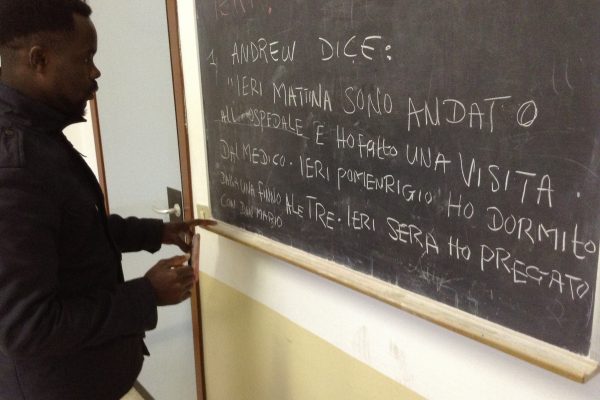 IERI:
1 ANDREW DICE:
"IERI MATTINA SONO ANDATO
ALL'OSPEDALE E HO FATTO UNA VISITA
DAL MEDICO. IERI POMENRIGIO HO DORMITO
DALLA UNA FINNO ALE TRE. IERI SERA HO PREGATO
CON DON MARIO